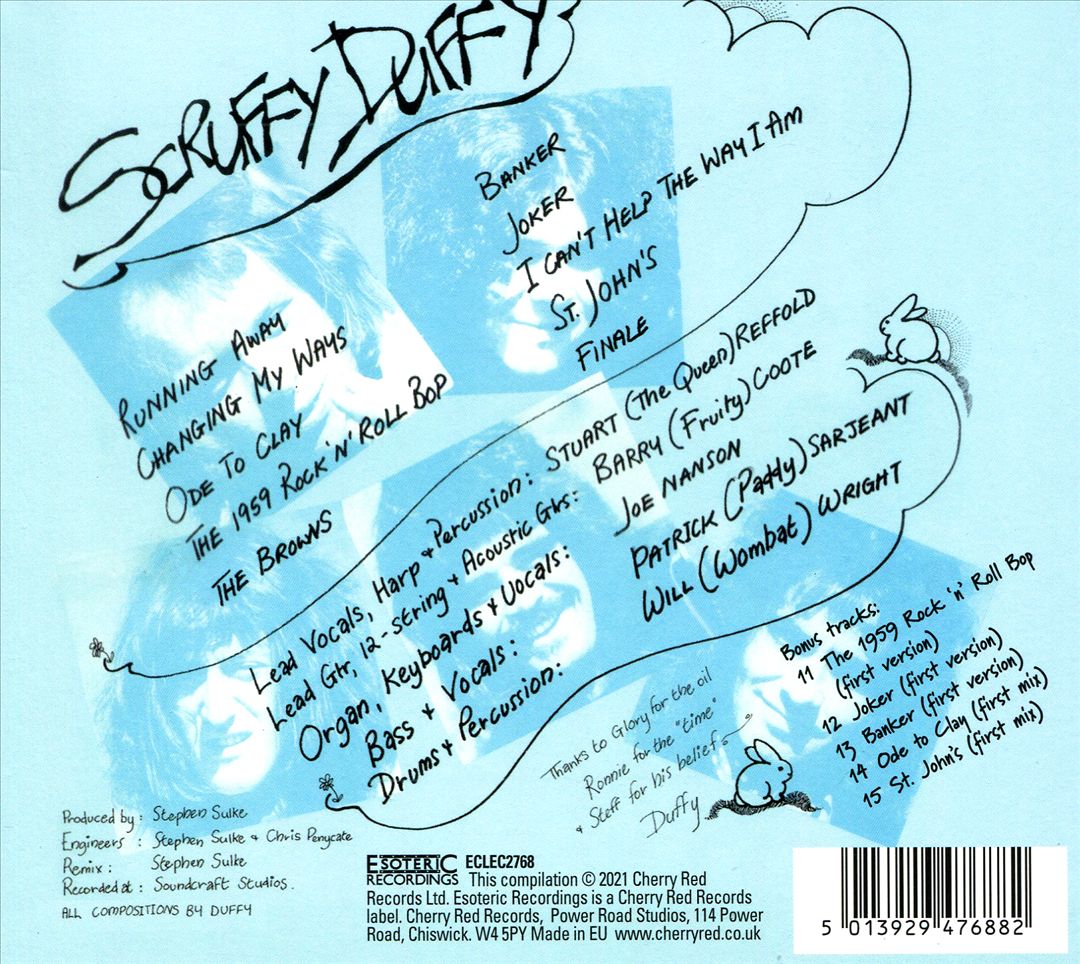 SCRUFFY DUFFY
RUNNING AWAY
CHANGING MY WAYS
ODE TO CLAY
THE 1959 ROCK 'N' ROLL BOP
THE BROWNS
BANKER
JOKER
I CAN'T HELP THE WAY I AM
ST. JOHN'S
FINALE
Lead Vocals, Harp + Percussion: STUART (The Queen) REFFOLD
Lead Gtr, 12-string + Acoustic Gtrs: BARRY (Fruity) COOTE
Organ, Keyboards + Vocals: JOE NANSON
Bass + Vocals: PATRICK (Paddy) SARJEANT
Drums + Percussion: WILL (Wombat) WRIGHT
Bonus tracks:
11 The 1959 Rock 'n' Roll Bop
(first version)
12 Joker (first version)
13 Banker (first version)
14 Ode to Clay (first mix)
15 St. John's (first mix)
Thanks to Glory for the oil
Ronnie for the "time"
+ Steff for his belief.
Duffy
Produced by: Stephen Sulke
Engineers: Stephen Sulke + Chris Penycate
Remix: Stephen Sulke
Recorded at: Soundcraft Studios.
ALL COMPOSITIONS BY DUFFY
ESOTERIC RECORDINGS ECLEC2768
This compilation © 2021 Cherry Red
Records Ltd. Esoteric Recordings is a Cherry Red Records
label. Cherry Red Records, Power Road Studios, 114 Power
Road, Chiswick. W4 5PY Made in EU www.cherryred.co.uk
5 013929 476882